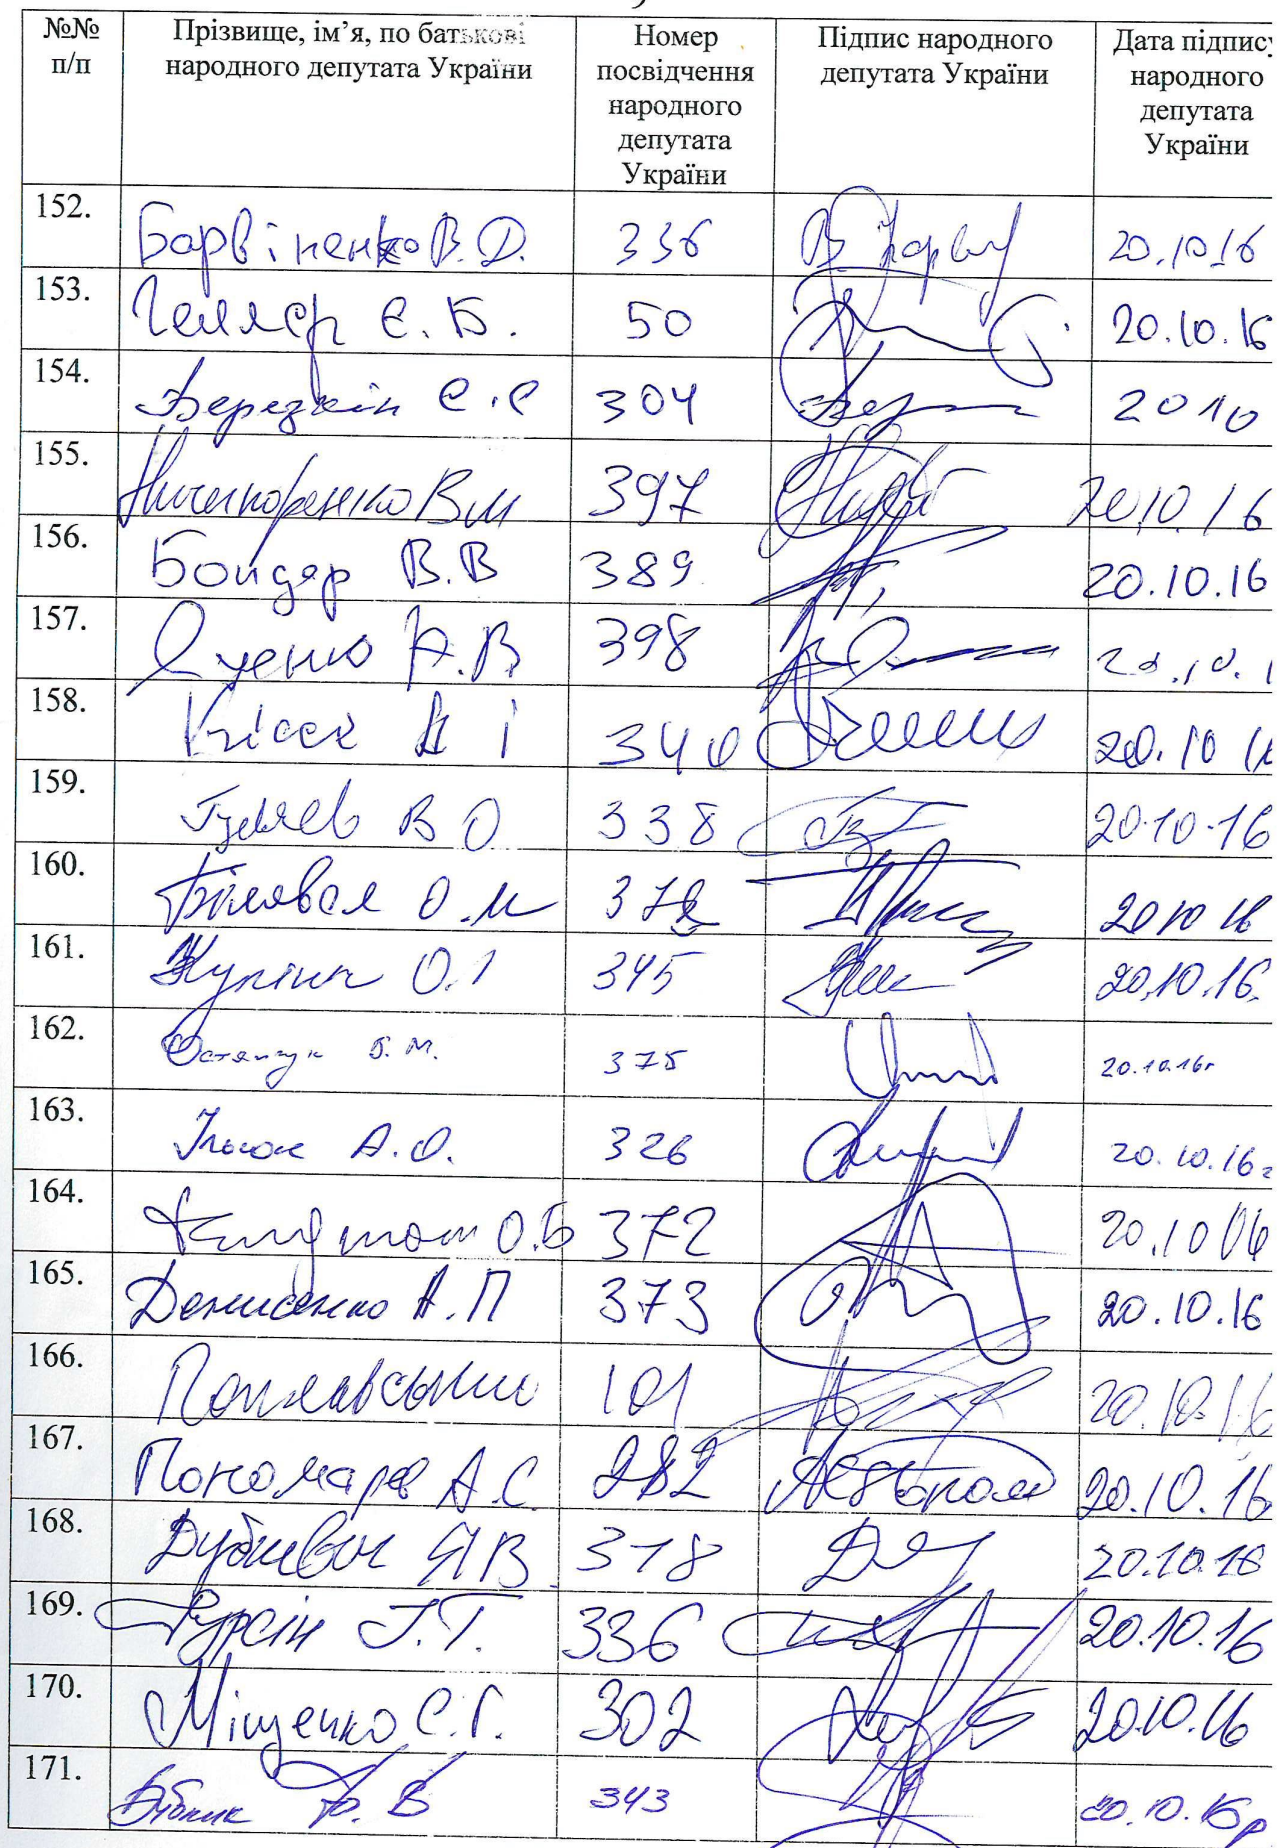 №№ п/п Прізвище, ім’я, по батькові народного депутата України Номер посвідчення народного депутата України Підпис народного депутата України Дата підпису народного депутата України
152. Барвіненко В.Д. 336 20.10.16
153. Гелляр Є.Б. 50 20.10.16
154. Березкін С.С 304 20 10
155. Ничипоренко В М 397 20.10.16
156. Бондар В.В 389 20.10.16
157. Яценко А.В 398 20.10.1
158. Кіссе А І 340 20.10 16
159. Гуляєв В О 338 20.10.16
160. О.М 20 10 16
161. Купінн О.І 345 20.10.16.
162. Остапчук В.М. 375 20.10.16г
163. Ільюк А.О. 326 20.10.16г
164. О.Б 372 20.10
165. Денисенко А.П 373 20.10.16
166. Поплавський 101 20.10.16
167. Пономарев А.С. 282 20.10.16
168. Дубневич Я В. 318 20.10.16
169. Фурсін І.Г. 336 20.10.16
170. Міщенко С.Г. 302 20.10.16
171. Бублик Ю.В 343 20.10.16р